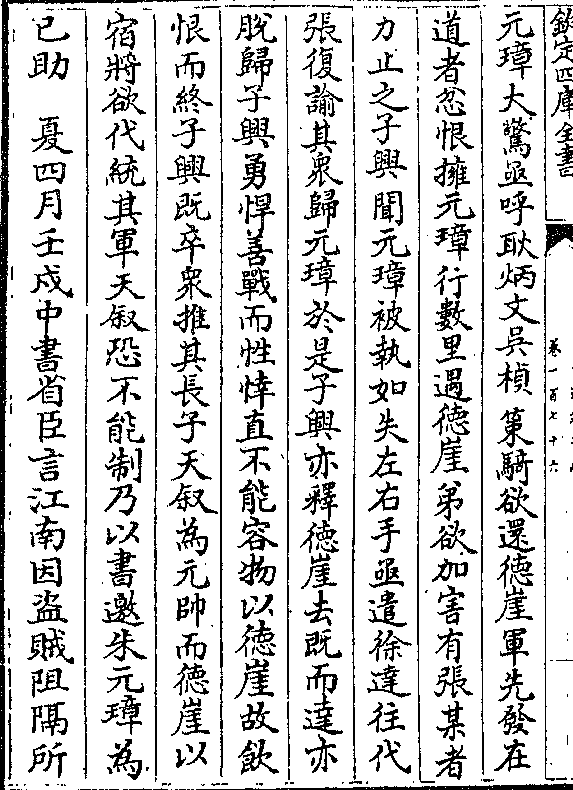 欽定四庫全書
卷一百七十六
元璋大驚亟呼耿炳文吳楨策騎欲還德崖軍先發在
道者忿恨擁元璋行數里遇德崖弟欲加害有張某者
力止之子興聞元璋被執如失左右手亟遣徐達往代
張復諭其衆歸元璋於是子興亦釋德崖去既而達亦
脫歸子興勇悍善戰而性悻直不能容物以德崖故飲
恨而終子興既卒衆推其長子天叙為元帥而德崖以
宿將欲代統其軍天叙恐不能制乃以書邀朱元璋為
己助　夏四月壬戌中書省臣言江南因盜賊阻隔所